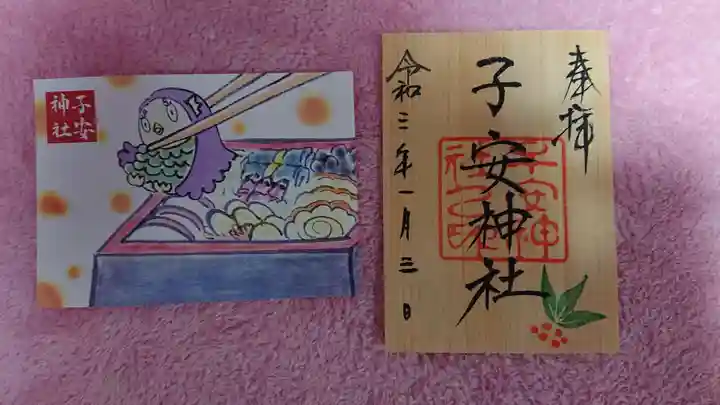 子安
神社
奉拝
子安神社
子安神
社之印
令和三年一月三日